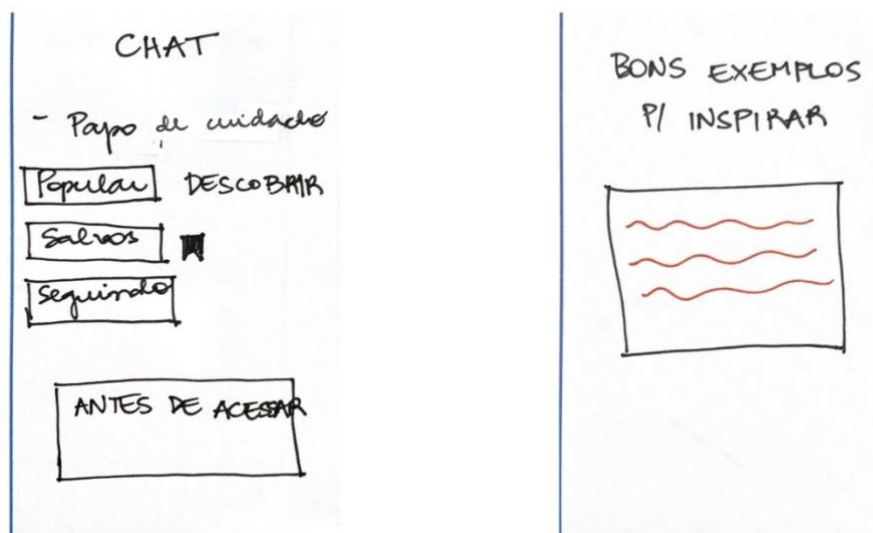 CHAT
- Papo de cuidado
Popular DESCOBRIR
Salvos
Seguindo
ANTES DE ACESSAR
BONS EXEMPLOS
P/ INSPIRAR